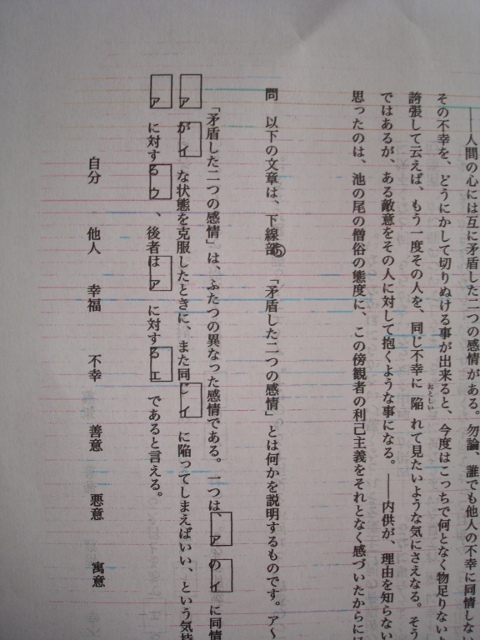 ――人間の心には互に矛盾した二つの感情がある。勿論、誰でも他人の不幸に同情しな
その不幸を、どうにかして切りぬける事が出来ると、今度はこっちで何となく物足りない
誇張して云えば、もう一度その人を、同じ不幸に陥れて見たいような気にさえなる。そう
おとしい
ではあるが、ある敵意をその人に対して抱くような事になる。――内供が、理由を知らない
思ったのは、池の尾の僧俗の態度に、この傍観者の利己主義をそれとなく感づいたからに
問 以下の文章は、下線部⑤「矛盾した二つの感情」とは何かを説明するものです。ア〜
「矛盾した二つの感情」は、ふたつの異なった感情である。一つは、アのイに同情
アがイな状態を克服したときに、また同じイに陥ってしまえばいい、という気持
アに対するウ、後者はアに対するエであると言える。
自分 他人 幸福 不幸 善意 悪意 寓意